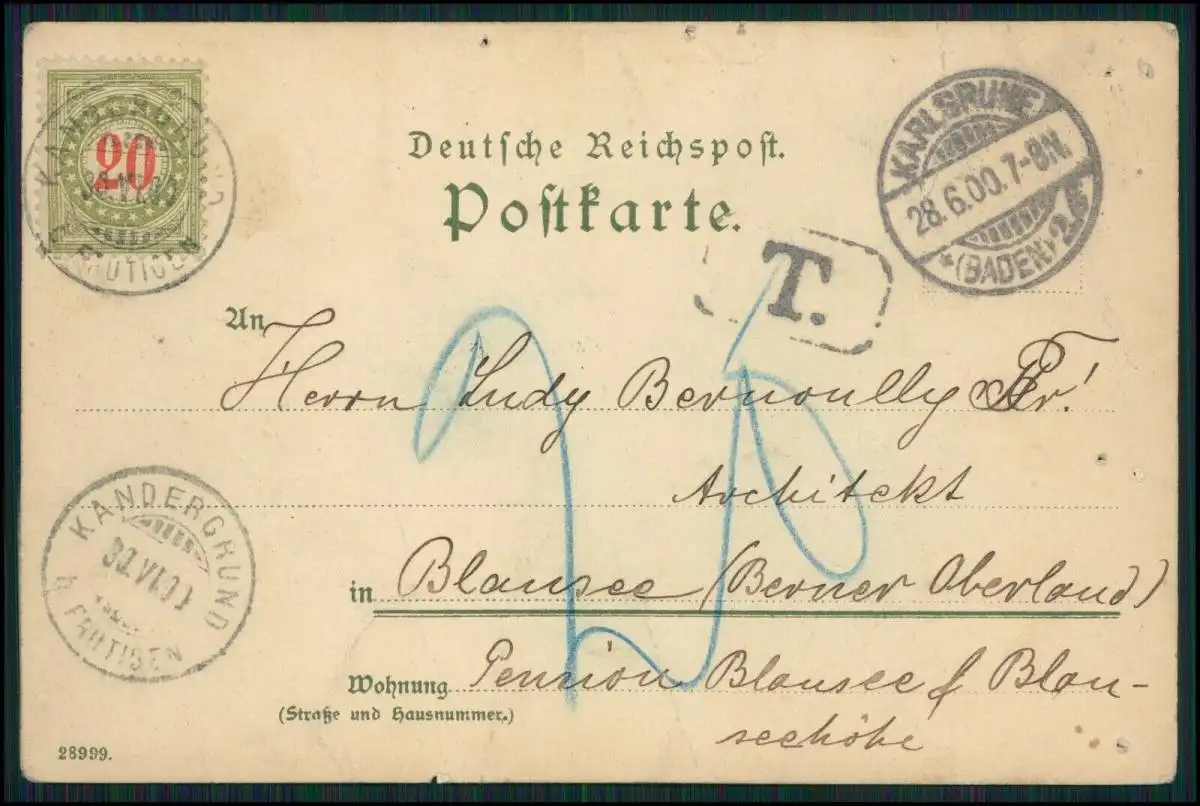 20
KANDERGRUND
FRUTIGEN
Deutsche Reichspost.
Postkarte.
KARLSRUHE
28.6.00.7-8N.
*(BADEN)*2.
T.
An Herrn Ludy Bernoully Fr!
Architekt
20
in Blausee (Berner Oberland)
Wohnung Pension Blausee & Blau-
(Straße und Hausnummer.)
seehöhe
KANDERGRUND
30.VI.00
b. FRUTIGEN
28999.